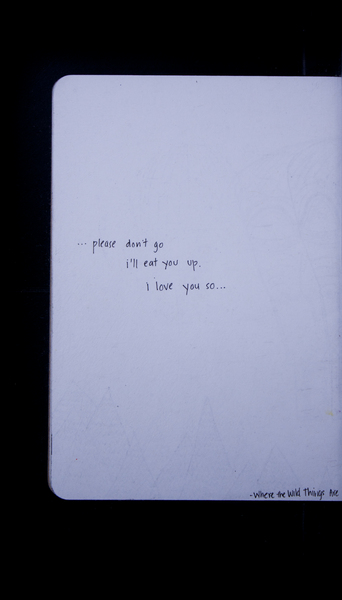 ... please don't go
i'll eat you up.
I love you so...
- Where the Wild Things Are